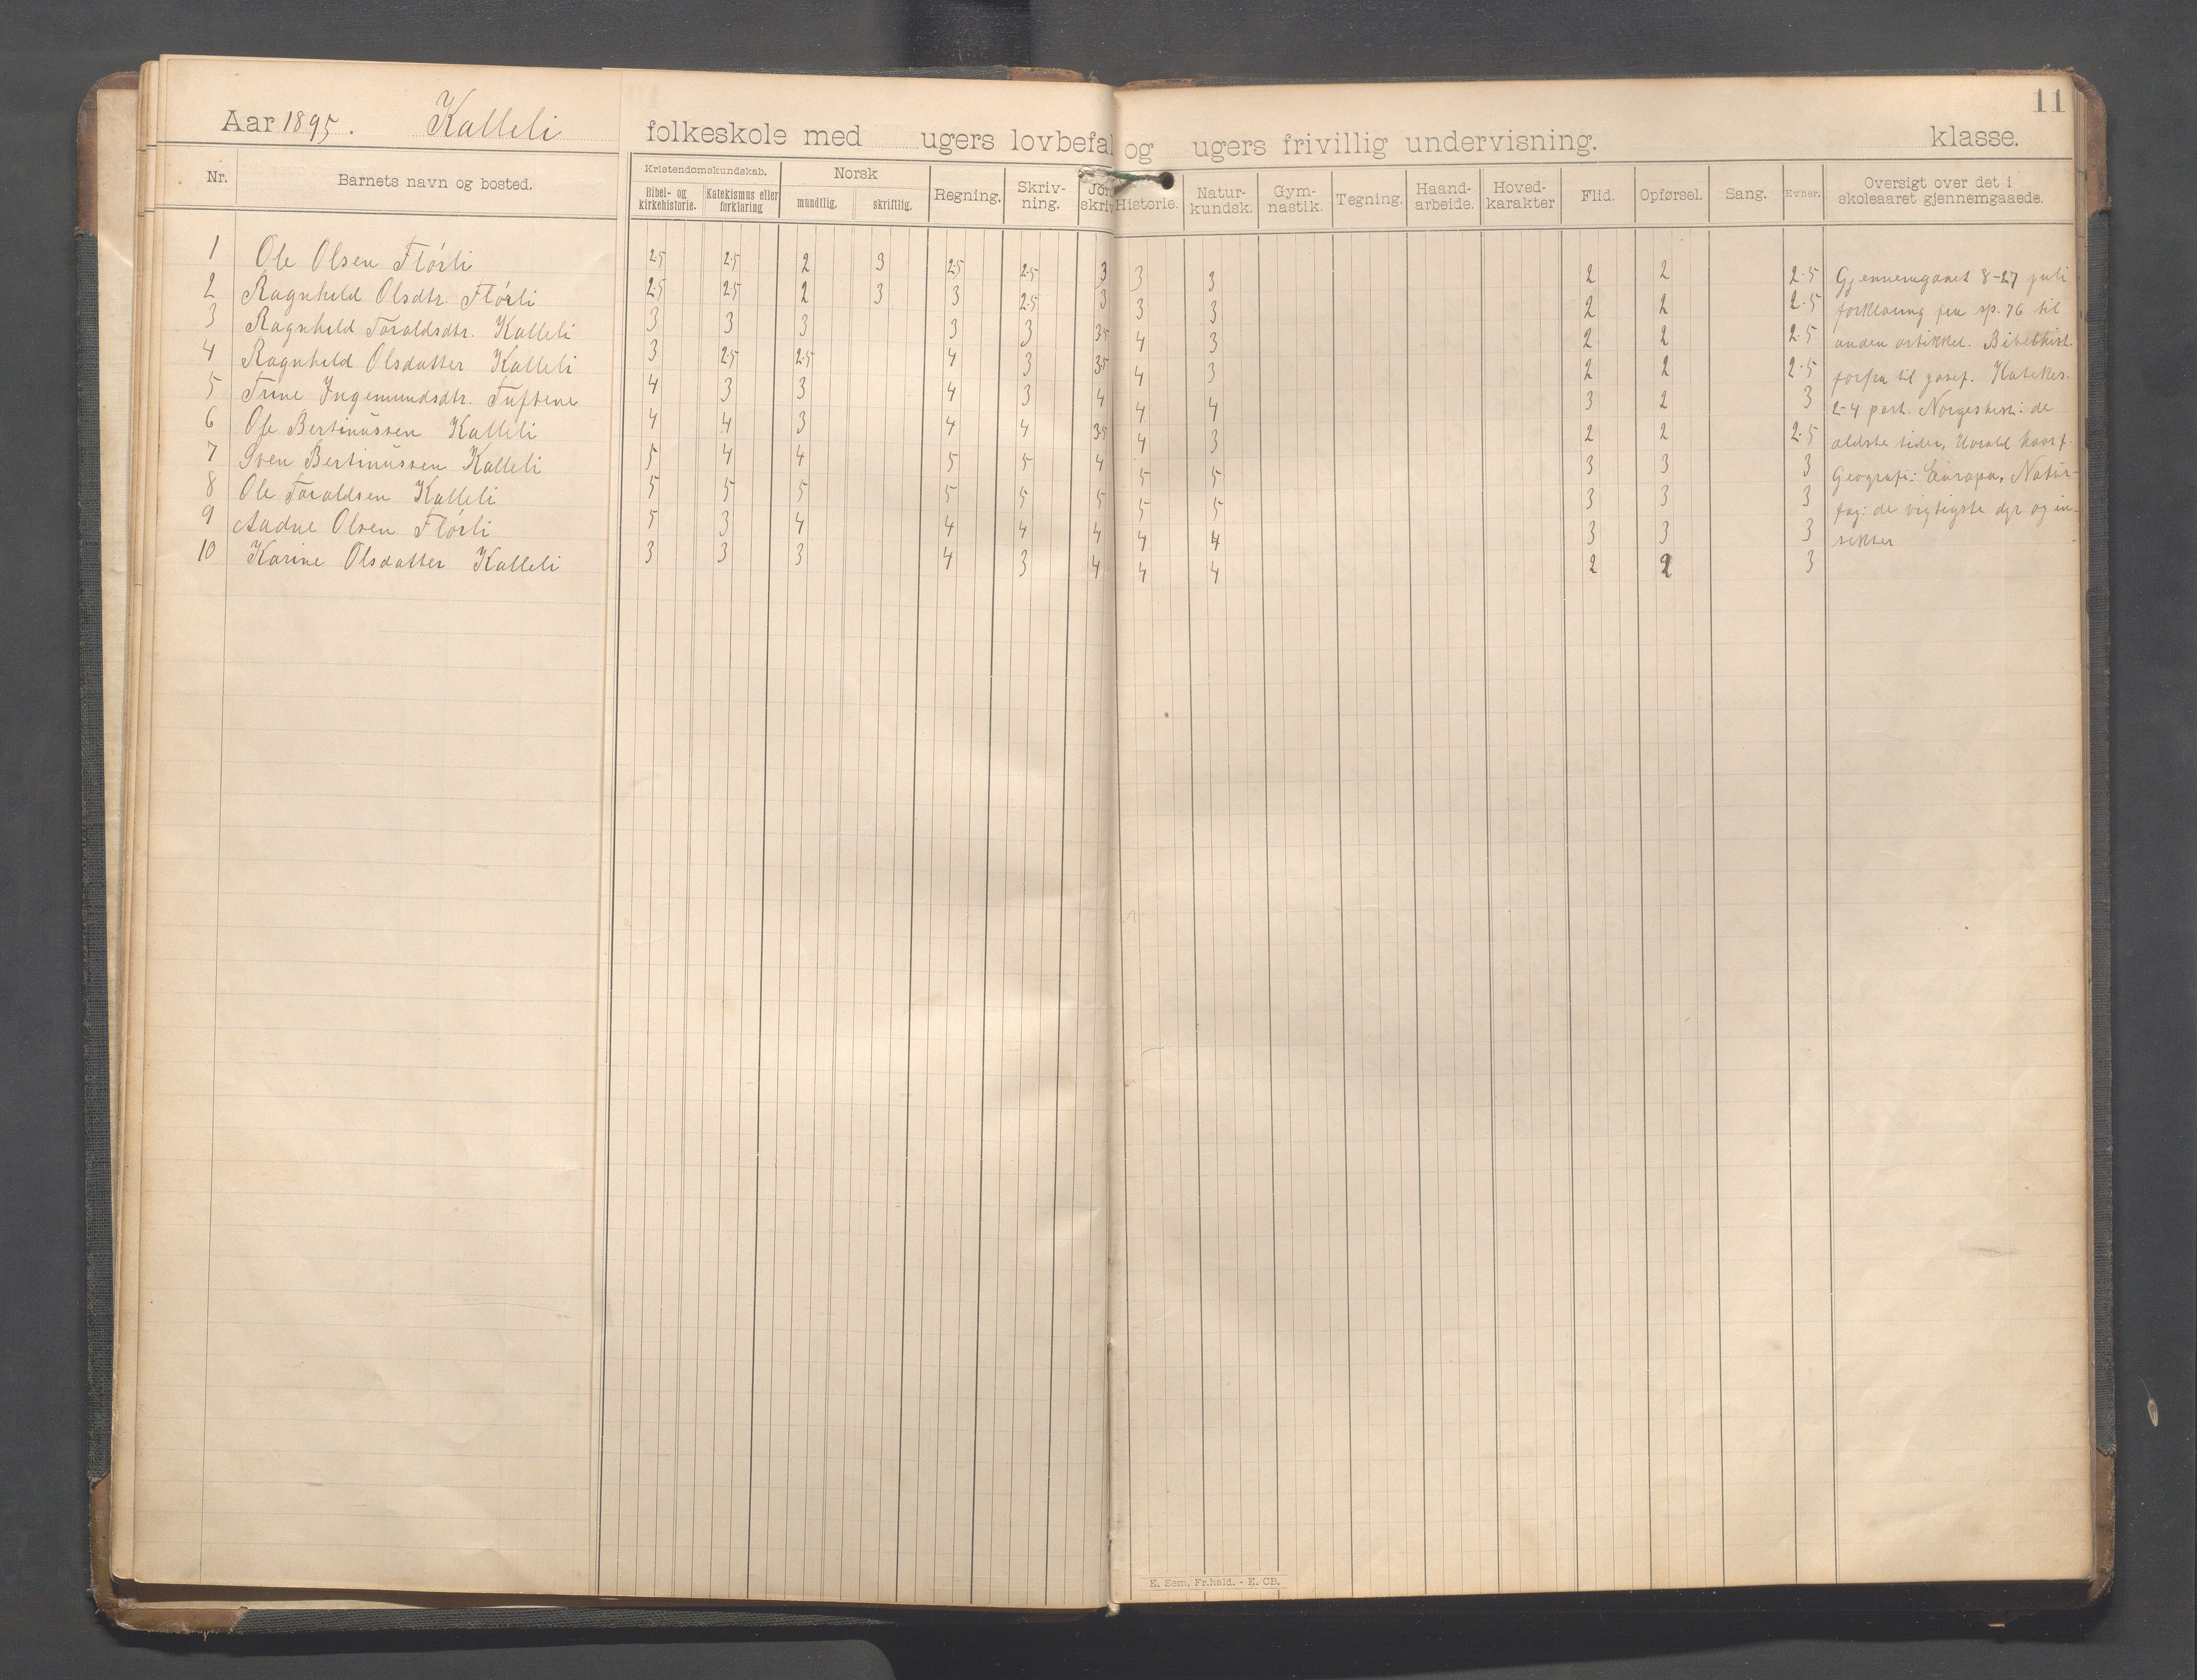 11
Aar 1895. Kalleli folkeskole med ugers lovbefal og ugers frivillig undervisning. klasse.
Nr. Barnets navn og bosted. Kristendomskundskab. Bibel- og kirkehistorie. Katekismus eller forklaring Norsk mundtlig. skriftlig. Regning. Skriv-ning. Jord skriv Historie. Natur-kundsk. Gym-nastik. Tegning. Haand-arbeide. Hoved-karakter Flid. Opførsel. Sang. Evner. Oversigt over det i skoleaaret gjennemgaaede.
1 Ole Olsen Flórli 2.5 2.5 2 3 2.5 2.5 3 3 3 2 2 2.5 Gjennemgaaet 8-27 juli
2 Ragnhild Olsdtr. Flórli 2.5 2.5 2 3 3 2.5 3 3 3 2 2 2.5 forklaring fra sp. 76 til
3 Ragnhild Taraldsdtr. Kalleli 3 3 3 3 3 3.5 4 3 2 2 2.5 anden artikkel. Bibelhist.
4 Ragnhild Olsdatter Kalleli 3 2.5 2.5 4 3 3.5 4 3 2 2 2.5 forfra til josef. Katekis.
5 Trine Ingemundsdtr. Tuftene 4 3 3 4 3 4 4 4 3 2 3 2-4 part. Norgeshist: de
6 Ole Bertinussen Kalleli 4 4 3 4 4 3.5 4 3 2 2 2.5 ældste tider, Harald haarf.
7 Sven Bertinussen Kalleli 5 4 4 5 5 4 5 5 3 3 3 Geografi: Europa. Natur-
8 Ole Taraldsen Kalleli 5 5 5 5 5 5 5 5 3 3 3 fag: de vigtigste dyr og in-
9 Aadne Olsen Flórli 5 3 4 4 4 4 4 4 3 3 3 sekter
10 Karine Olsdatter Kalleli 3 3 3 4 3 4 4 4 2 2 3
E. Sem, Fr.hald. - E. CB.